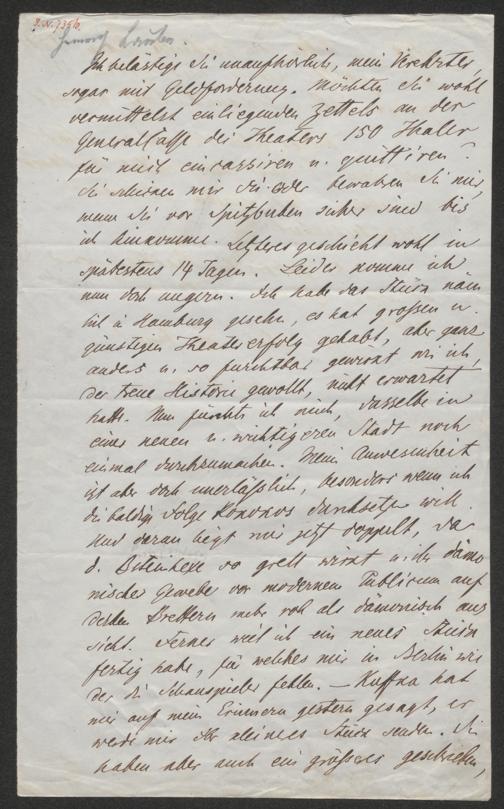 J. N. 7356
Heinrich Laube.
Ich belästige Sie unaufhörlich, mein Verehrter,
sogar mit Geldforderung. Möchten Sie wohl
vermittelst einliegenden Zettels an der
Generalkasse des Theaters 150 Thaler
für mich eincassiren u. quittiren?
Sie schicken mir sie oder bewahren sie mir,
wenn Sie vor Spitzbuben sicher sind bis
ich hinkomme. Letzteres geschieht wohl in
spätestens 14 Tagen. Leider komme ich
nun doch ungern. Ich habe das Stück näm
lich in Hamburg gesehn, es hat großen u.
günstigen Theatererfolg gehabt, aber ganz
anders u. so furchtbar gewirkt wie ich,
der treue Historie gewollt, nicht erwartet
hatte. Nun fürchte ich mich, dasselbe in
einer neuen u. wichtigeren Stadt noch
einmal durchzumachen. Mein Anwesenheit
ist aber doch unerläßlich, besonders wenn ich
die baldige Folge Rokokos durchsetzen will.
Und daran liegt mir jetzt doppelt, da
d. Bernsteinhexe so grell wirkt u. ihr dämo
nischer Gewebe vor modernem Publicum auf
derben Brettern mehr roh als dämonisch aus
sieht. Ferner weil ich ein neues Stück
fertig habe, für welches mir in Berlin wie
der die Schauspieler fehlen. — Küstner hat
mir auf mein Erinnern gestern gesagt, er
werde mir Ihr kleines Stück senden. Sie
haben aber auch ein größeres geschrieben,